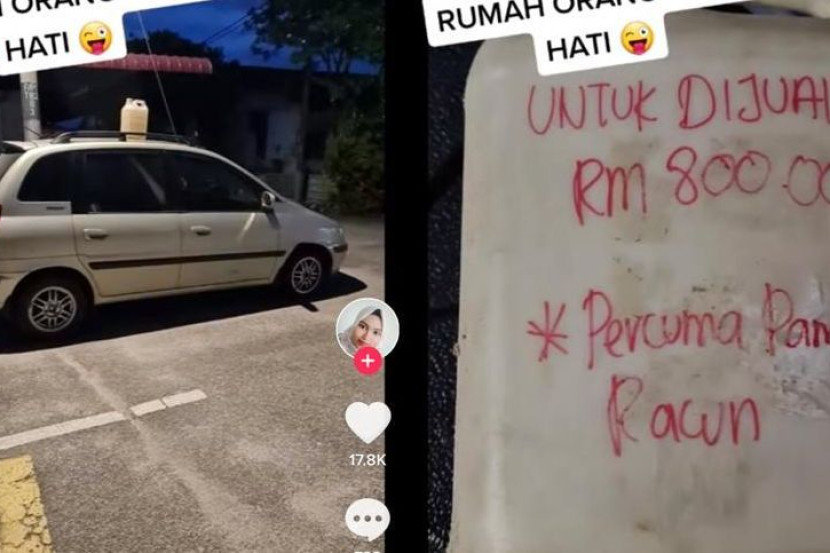 ORANG
HATI 😜
17.8K
RUMAH ORANG
HATI 😜
UNTUK DIJUAL
RM 800.00
* Percuma Pam
Racun